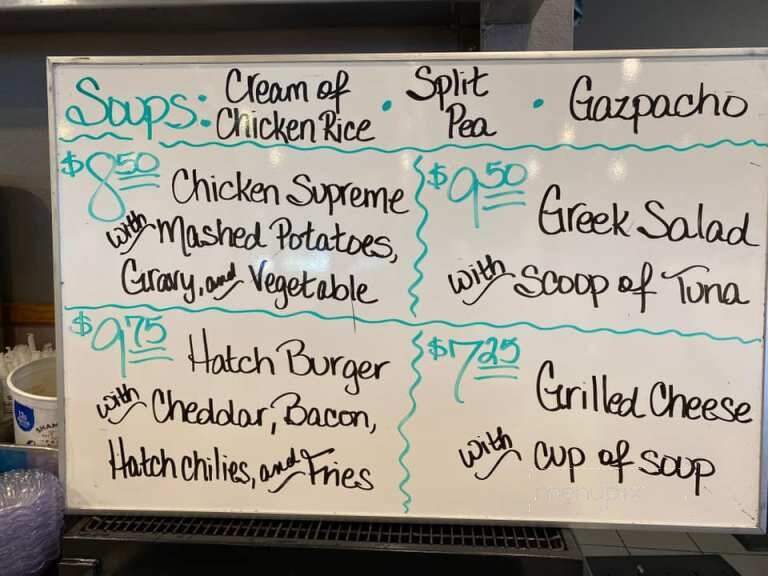 Soups: Cream of Chicken Rice • Split Pea • Gazpacho
$8.50 Chicken Supreme
with Mashed Potatoes,
Gravy, and Vegetable
$9.50 Greek Salad
with scoop of Tuna
$9.75 Hatch Burger
with Cheddar, Bacon,
Hatch chilies, and Fries
$7.25 Grilled Cheese
with cup of soup
menupix